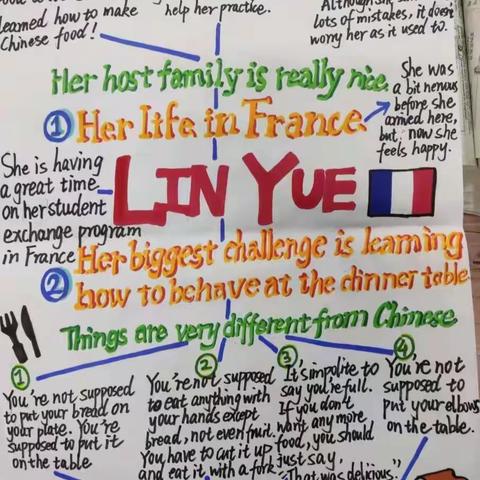 learned how to make
Chinese food!
help her practice.
lots of mistakes, it doesn't
worry her as it used to.
Her host family is really nice.
① Her Life in France
She was
a bit nervous
before she
arrived here,
but now she
feels happy.
She is having
a great time
on her student
exchange program
in France
LIN YUE
② Her biggest challenge is learning
how to behave at the dinner table
Things are very different from Chinese
①
You're not supposed
to put your bread on
your plate. You're
supposed to put it
on the table
②
You're not supposed
to eat anything with
your hands except
bread, not even fruit.
You have to cut it up
and eat it with a fork.
③
It's impolite to
say you're full.
If you don't
want any more
food, you should
just say,
"That was delicious."
④
You're not
supposed to
put your elbows
on the table.